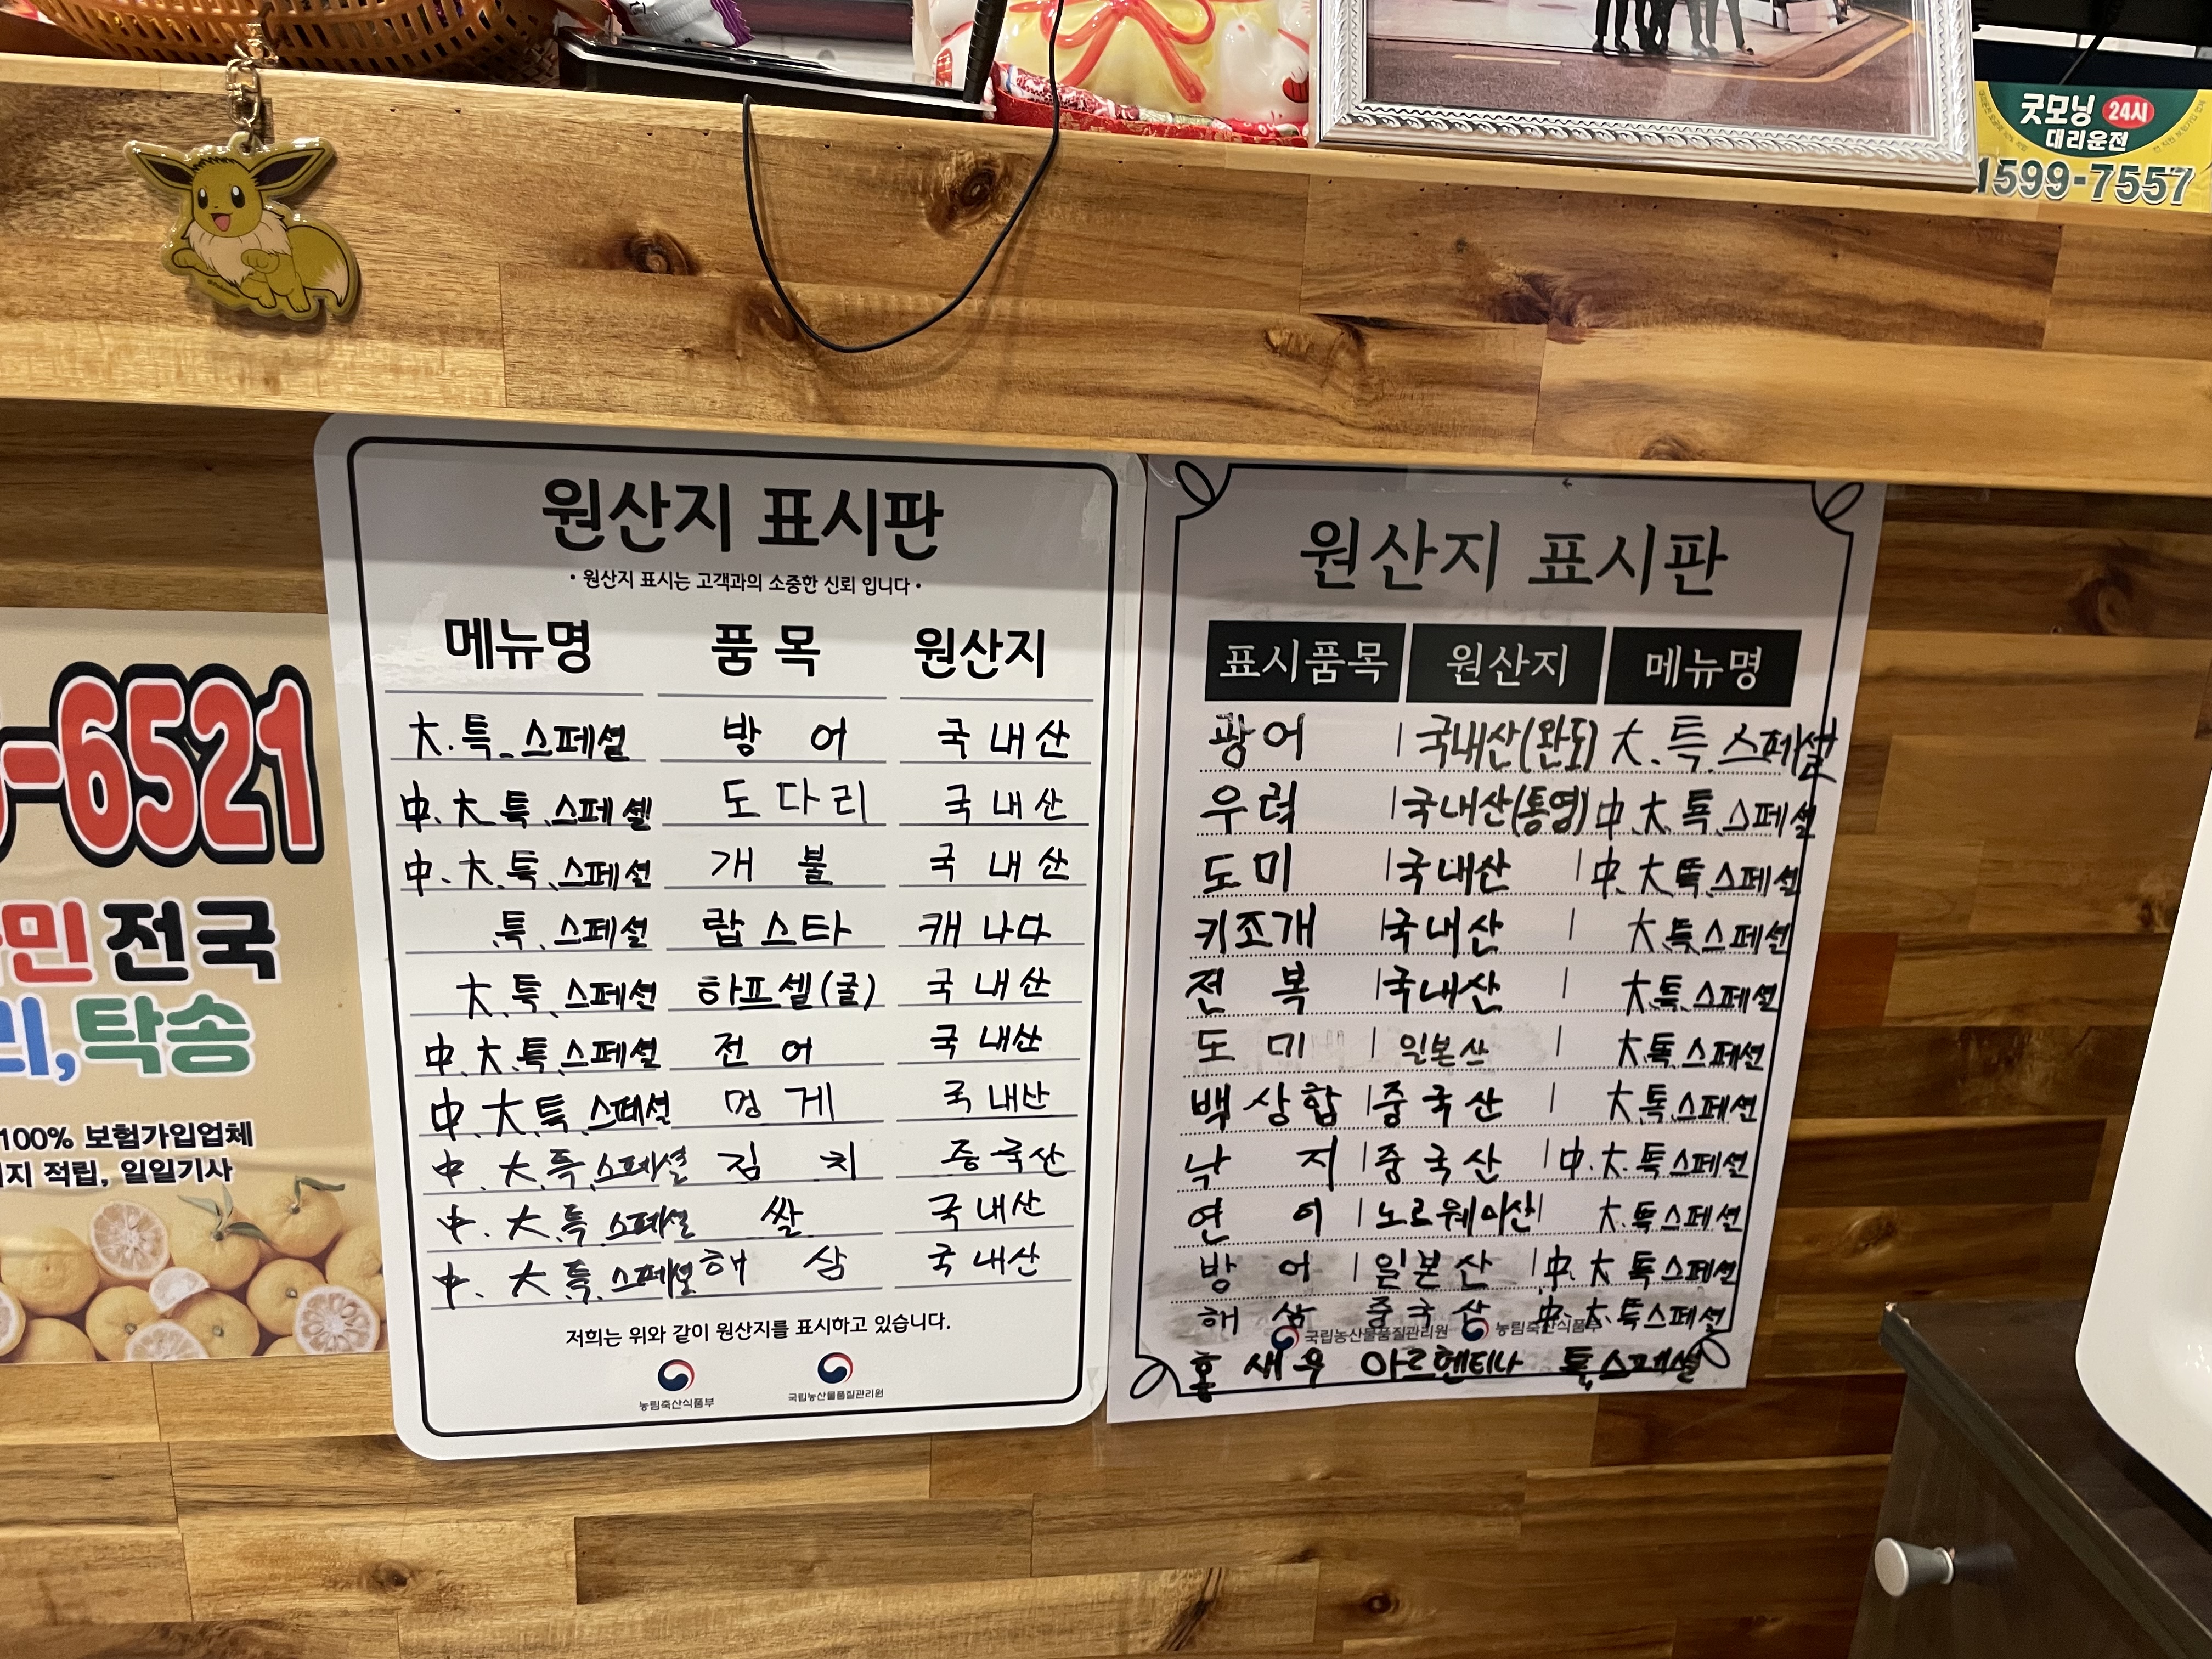 굿모닝 24시
대리운전
1599-7557
-6521
민 전국
리, 탁송
100% 보험가입업체
지 적립, 일일기사
원산지 표시판
• 원산지 표시는 고객과의 소중한 신뢰 입니다 •
메뉴명 품목 원산지
大. 특. 스페셜 방어 국내산
中. 大. 특. 스페셜 도다리 국내산
中. 大. 특. 스페셜 개불 국내산
특. 스페셜 랍스타 캐나다
大. 특. 스페셜 하프셀(굴) 국내산
中. 大. 특. 스페셜 전어 국내산
中. 大. 특. 스페셜 멍게 국내산
中. 大. 특. 스페셜 김치 중국산
中. 大. 특. 스페셜 쌀 국내산
中. 大. 특. 스페셜 해삼 국내산
저희는 위와 같이 원산지를 표시하고 있습니다.
농림축산식품부 국립농산물품질관리원
원산지 표시판
표시품목 원산지 메뉴명
광어 | 국내산(완도) 大. 특. 스페셜
우럭 | 국내산(통영) 中. 大. 특. 스페셜
도미 | 국내산 | 中. 大. 특. 스페셜
키조개 | 국내산 | 大. 특. 스페셜
전복 | 국내산 | 大. 특. 스페셜
도미 | 일본산 | 大. 특. 스페셜
백상합 | 중국산 | 大. 특. 스페셜
낙지 | 중국산 | 中. 大. 특. 스페셜
연어 | 노르웨이산 | 大. 특. 스페셜
방어 | 일본산 | 中. 大. 특. 스페셜
해삼 중국산 中. 大. 특. 스페셜
국립농산물품질관리원 농림축산식품부
홍새우 아르헨티나 특. 스페셜